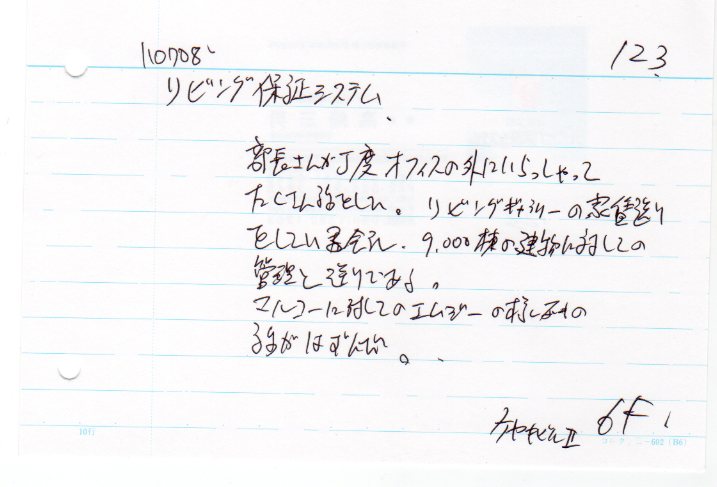 110708
123
リビング保証システム
部長さんが丁度オフィスの外にいらっしゃって
たくさん話をした。リビングギャラリーの家賃送り
をしている会社、9,000棟の建物に対しての
管理と送りですよ。
マルコーに対してのエムジーの様しての
話がはずんだ。
Ⅱ 6F
10行
コレクト 602 (B6)